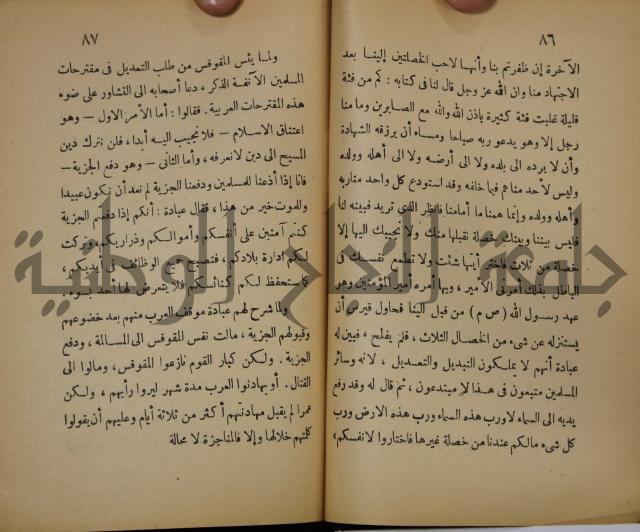 ٨٦
الآخرة إن ظفرتم بنا وأنها لاحب الخصلتين إلينا بعد
الاجتهاد منا وان الله عز وجل قال لنا فى كتابه : كم من فئة
قليلة غلبت فئة كثيرة باذن الله والله مع الصابرين وما منا
رجل إلا وهو يدعو ربه صباحا ومساء أن يرزقه الشهادة
وأن لا يرده الى بلده ولا الى أرضه ولا الى أهله وولده
وليس لأحد منا هم فيما خلفه وقد استودع كل واحد منا ربه
وأهله وولده وإنما همنا ما أمامنا فانظر الذى تريد فبينه لنا
فليس بيننا وبينك خصلة نقبلها منك ولا نجيبك اليها إلا
خصلة من ثلاث فاختر أيتها شئت ولا تطمع نفسك فى
الباطل بذلك أمرنى الأمير ، وبها أمره أمير المؤمنين وهو
عهد رسول الله (ص م) من قبل الينا فحاول قيرس أن
يستنزله عن شىء من الخصال الثلاث ، فلم يفلح ، فبين له
عبادة أنهم لا يملكون التبديل والتعديل ، لانه وسائر
المسلمين متبعون فى هذا لا مبتدعون ، ثم قال له وقد رفع
يديه الى السماء لا ورب هذه السماء ورب هذه الارض ورب
كل شىء مالكم عندنا من خصلة غيرها فاختاروا لانفسكم»
٨٧
ولما يئس المقوقس من طلب التعديل فى مقترحات
المسلمين الآنفة الذكر ، دعا أصحابه الى التشاور على ضوء
هذه المقترحات العربية . فقالوا : أما الأمر الاول — وهو
اعتناق الاسلام — فلا نجيب اليه أبدا ، فلن نترك دين
المسيح الى دين لا نعرفه ، وأما الثانى — وهو دفع الجزية —
فانا إذا أذعنا للمسلمين ودفعنا الجزية لم نعد أن نكون عبيدا
وللموت خير من هذا ، فقال عبادة : أنكم إذا دفعتم الجزية
كنتم آمنين على أنفسكم وأموالكم وذراريكم ، وتركت
لكم ادارة بلادكم ، فتصبح جميع الوظائف فى أيديكم ،
ثم تستحفظ لكم كنائسكم فلا يتعرض لها أحد بسوء .
ولما شرح لهم عبادة موقف العرب منهم بعد خضوعهم
وقبولهم الجزية ، مالت نفس المقوقس الى المسالمة ، ودفع
الجزية . ولكن كبار القوم نازعوا المقوقس ، ومالوا الى
القتال . أو يهادنوا العرب مدة شهر ليروا رأيهم ، ولكن
عمرا لم يقبل مهادنتهم أكثر من ثلاثة أيام وعليهم أن يقولوا
كلمتهم خلالها وإلا فالمناجزة لا محالة
جامعة النجاح الوطنية